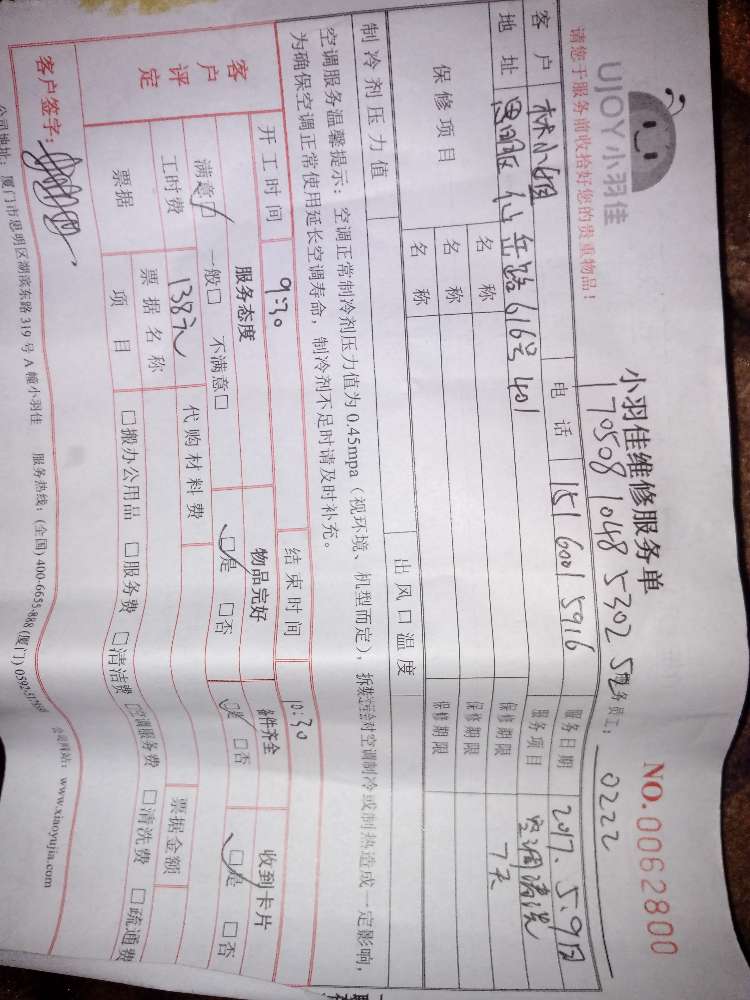 UJOY小羽佳
请您于服务前收拾好您的贵重物品！
小羽佳维修服务单
NO.0062800
17050810485302 52
服务员工： 0222
客户 林小姐 电话 151 6001 5916 服务日期 2017.5.9日
地址 思明区仙岳路616号401 服务项目 空调清洗
保修项目 名称 保修期限 7天
名称 保修期限
名称 保修期限
制冷剂压力值 出风口温度
空调服务温馨提示：空调正常制冷剂压力值为0.45mpa（视环境、机型而定），拆装空调会对空调制冷或制热造成一定影响，
为确保空调正常使用延长空调寿命，制冷剂不足时请及时补充。
开工时间 9:30 结束时间 10:30
客户评定 服务态度 物品完好 备件齐全 收到卡片
满意☑ 一般□ 不满意□ ☑是 □否 ☑是 □否 ☑是 □否
工时费 138元 代购材料费
票据 票据名称 票据金额
项目 □搬办公用品 □服务费 □清洁费 □空调服务费 □清洗费 □疏通费
客户签字：
公司地址：厦门市思明区湖滨东路319号A幢小羽佳 服务热线：(全国) 400-6655-888 (厦门)
公司网站： www.xiaoyujia.com